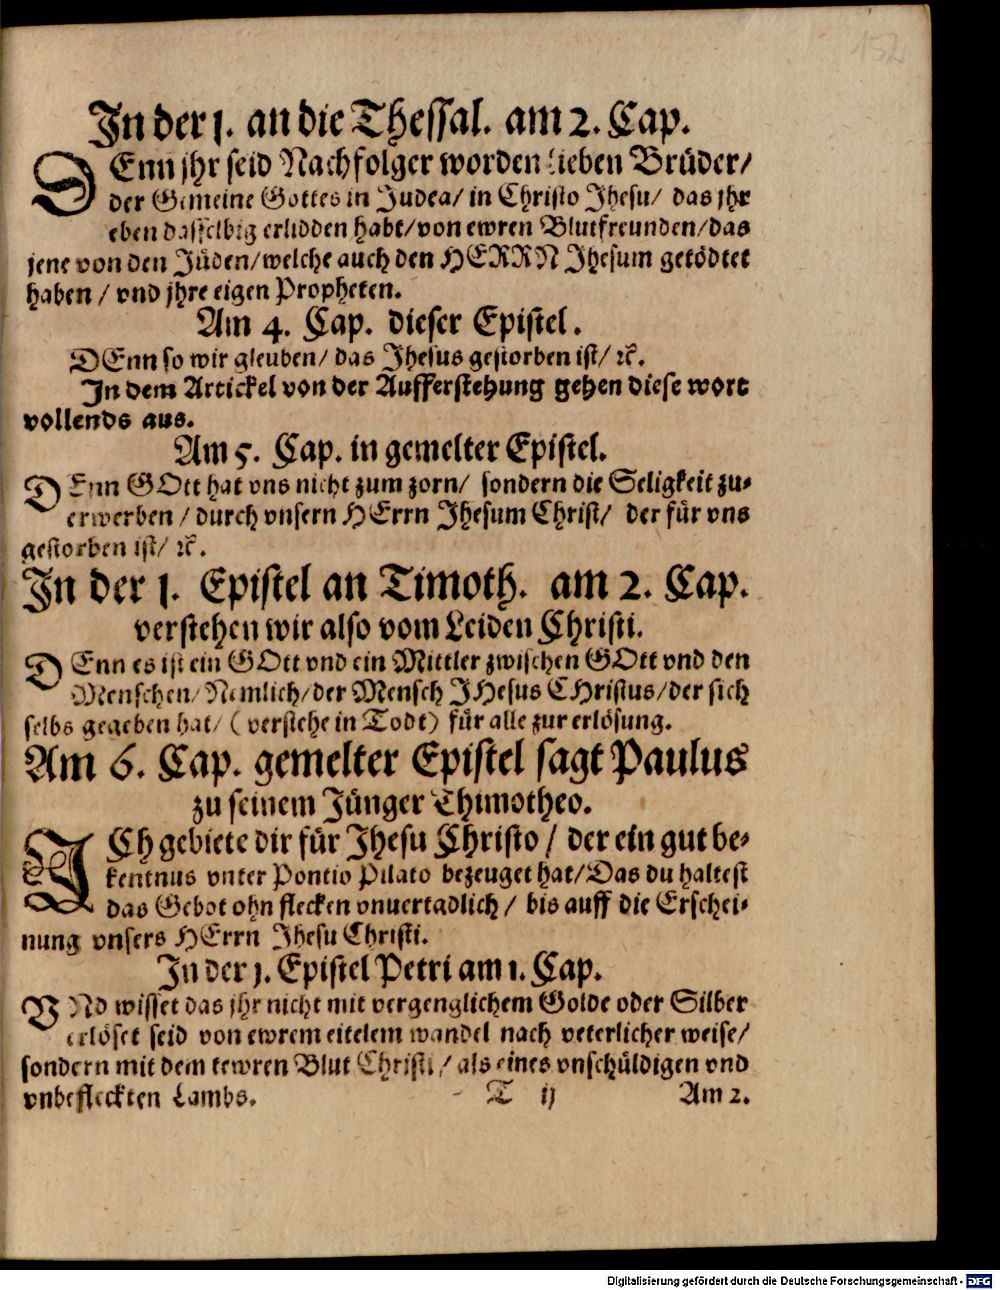 152
In der 1. an die Thessal. am 2. Cap.
DEnn jhr seid Nachfolger worden lieben Brüder/
der Gemeine Gottes in Judea/ in Christo Jhesu/ das jhr
eben dasselbig erlidden habt/ von ewren Blutfreunden/ das
jene von den Jüden/ welche auch den HERRN Jhesum getödtet
haben / vnd jhre eigen Propheten.
Am 4. Cap. dieser Epistel.
DEnn so wir gleuben/ das Jhesus gestorben ist/ ꝛc̃.
In dem Artickel von der Aufferstehung gehen diese wort
vollends aus.
Am 5. Cap. in gemelter Epistel.
DEnn GOtt hat vns nicht zum zorn/ sondern die Seligkeit zu-
erwerben / durch vnsern HErrn Jhesum Christ/ der für vns
gestorben ist/ ꝛc̃.
In der 1. Epistel an Timoth. am 2. Cap.
verstehen wir also vom Leiden Christi.
DEnn es ist ein GOtt vnd ein Mittler zwischen GOtt vnd den
Menschen/ Nemlich/ der Mensch JHesus CHristus/ der sich
selbs gegeben hat/ ( verstehe in Todt) für alle zur erlösung.
Am 6. Cap. gemelter Epistel sagt Paulus
zu seinem Jünger Thimotheo.
ICh gebiete dir für Jhesu Christo / der ein gut be-
kentnus vnter Pontio Pilato bezeuget hat/ Das du haltest
das Gebot ohn flecken vnuertadlich / bis auff die Erschei-
nung vnsers HErrn Jhesu Christi.
In der 1. Epistel Petri am 1. Cap.
VNd wisset das jhr nicht mit vergenglichem Golde oder Silber
erlöset seid von ewrem eitelem wandel nach veterlicher weise/
sondern mit dem tewren Blut Christi / als eines vnschüldigen vnd
vnbefleckten Lambs.
T ij Am 2.
Digitalisierung gefördert durch die Deutsche Forschungsgemeinschaft - DFG